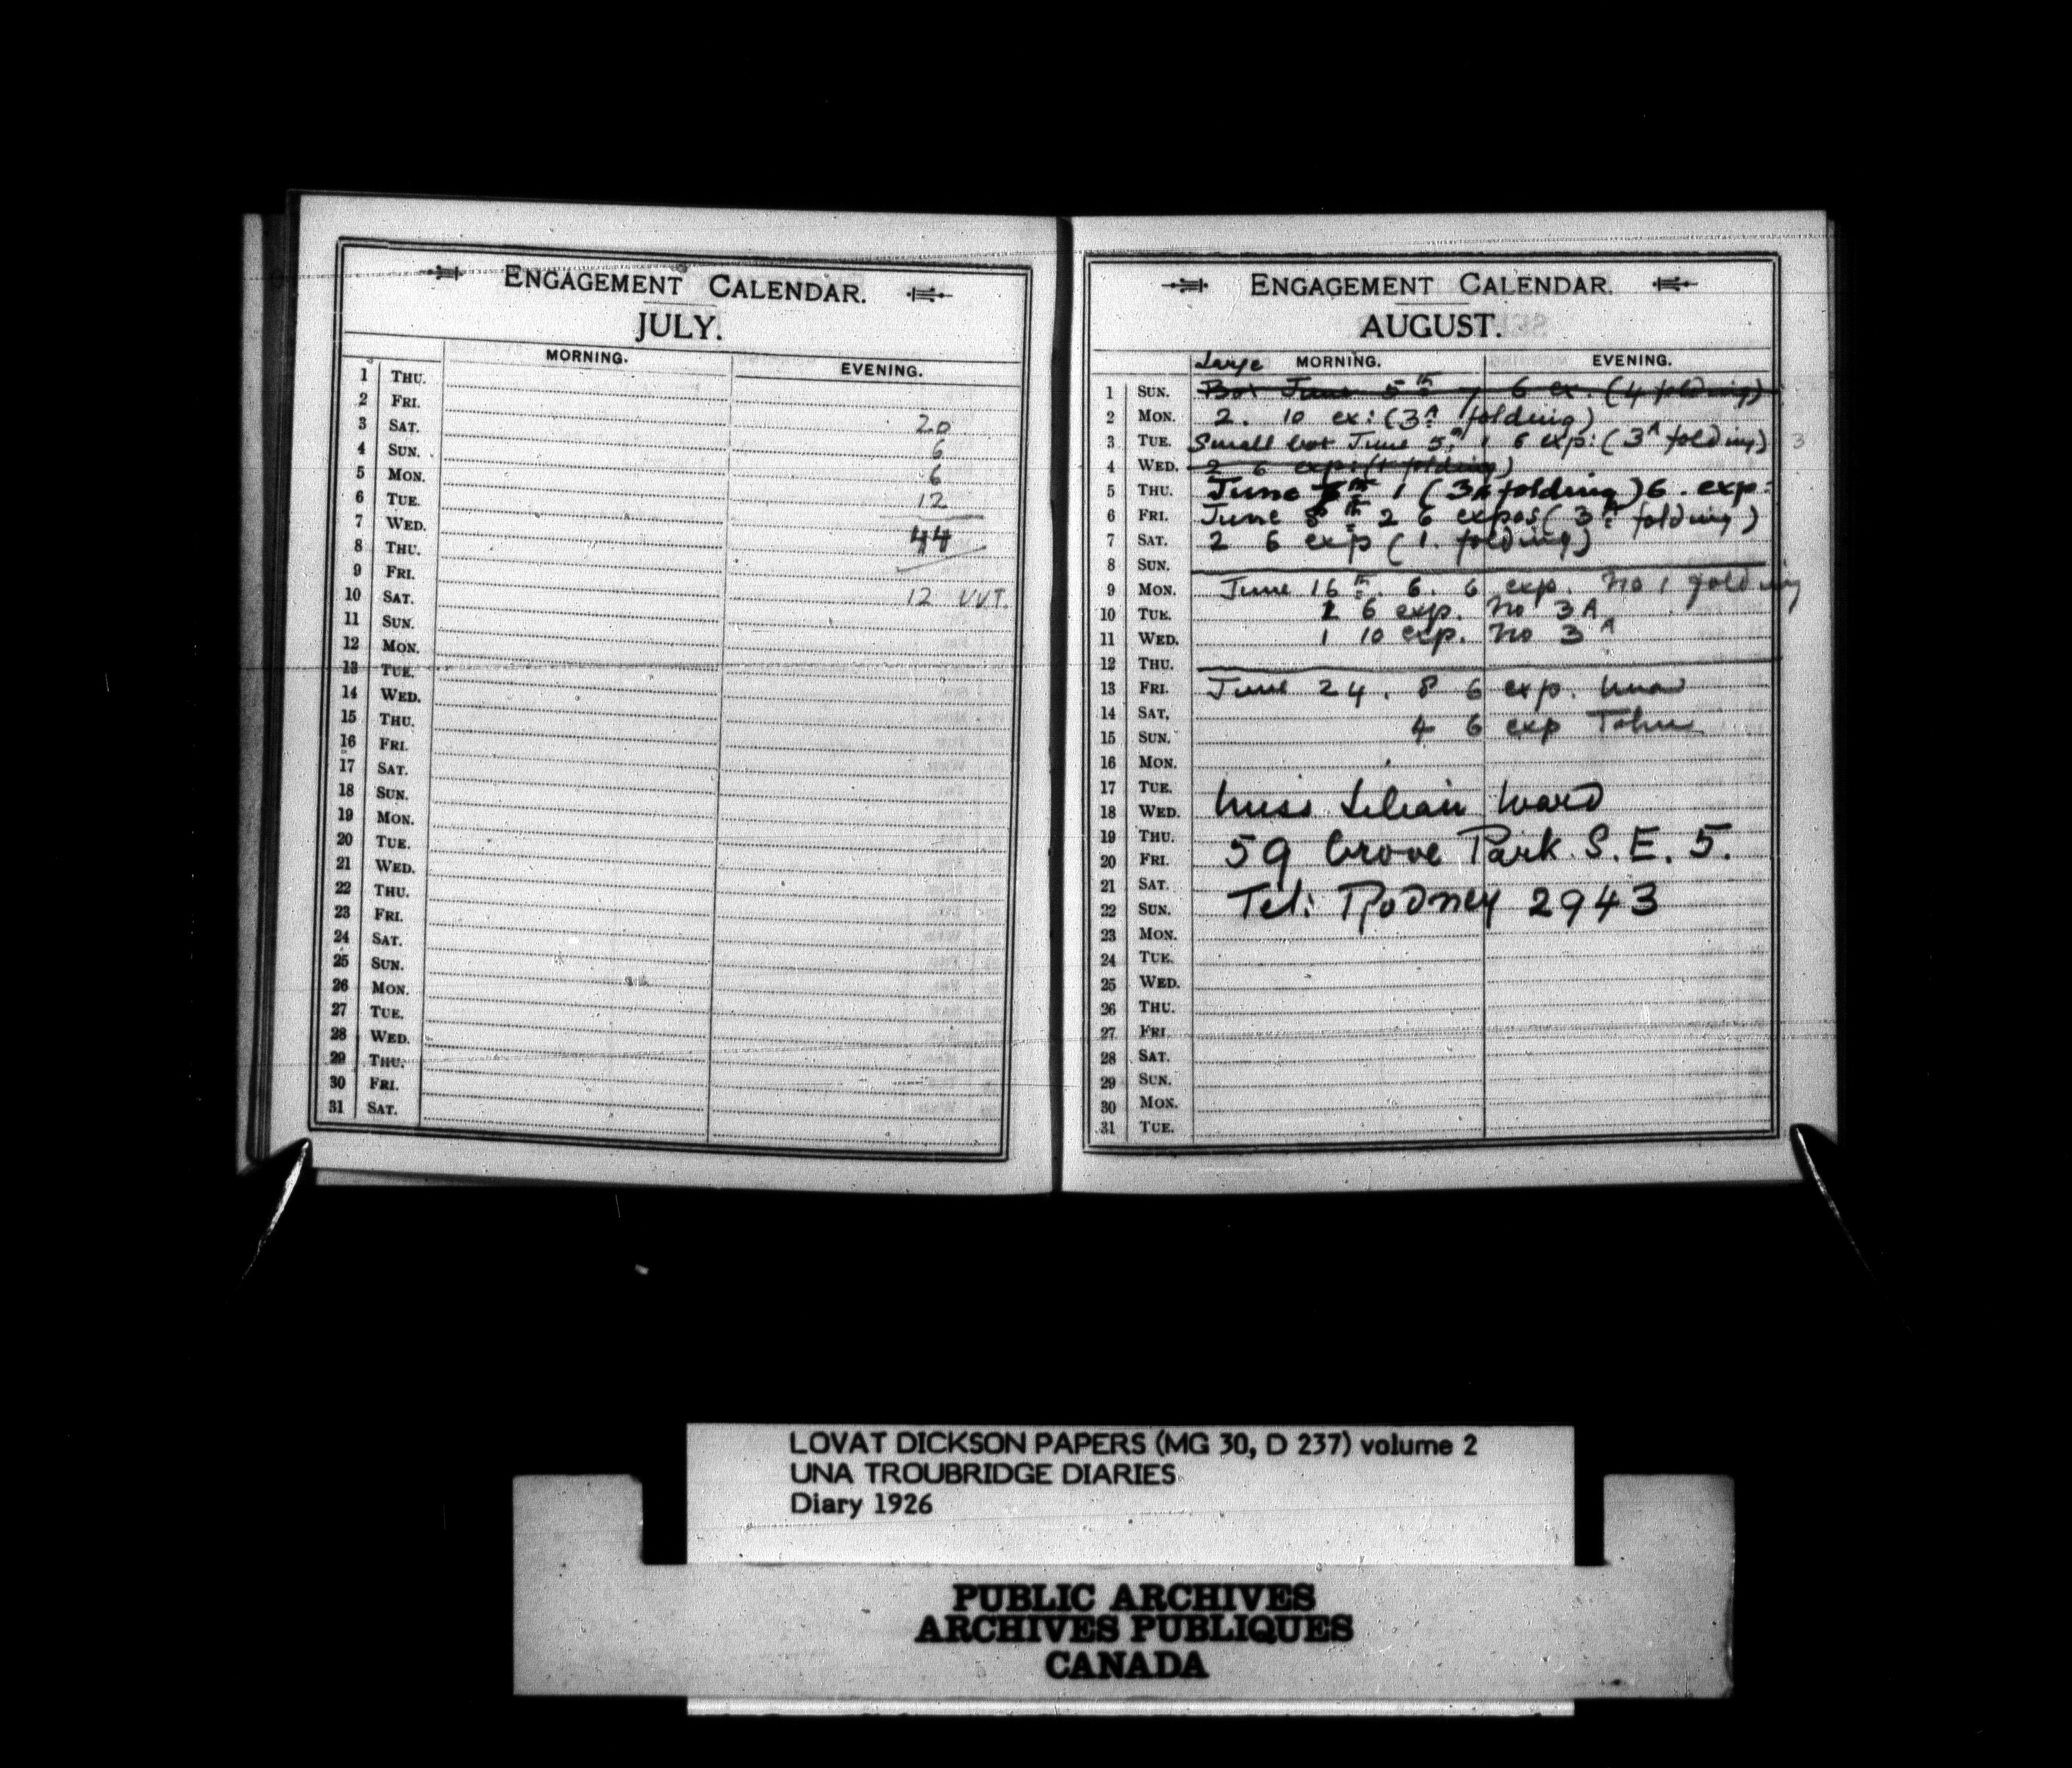 ENGAGEMENT CALENDAR.
JULY.
MORNING. EVENING.
1 THU.
2 FRI.
3 SAT. 20
4 SUN. 6
5 MON. 6
6 TUE. 12
7 WED. 44
8 THU.
9 FRI.
10 SAT. 12 VVT.
11 SUN.
12 MON.
13 TUE.
14 WED.
15 THU.
16 FRI.
17 SAT.
18 SUN.
19 MON.
20 TUE.
21 WED.
22 THU.
23 FRI.
24 SAT.
25 SUN.
26 MON.
27 TUE.
28 WED.
29 THU.
30 FRI.
31 SAT.
ENGAGEMENT CALENDAR.
AUGUST.
Large MORNING. EVENING.
1 SUN. Box June 5th 1 6 ex. (4 folding)
2 MON. 2. 10 ex: (3A folding)
3 TUE. Small box June 5th 1 6 exp: (3A folding) 3
4 WED. 2 6 exp: (1 folding)
5 THU. June 1 (3A folding) 6. exp:
6 FRI. June 8th 2 6 expos (3A folding)
7 SAT. 2 6 exp (1. folding)
8 SUN.
9 MON. June 16th. 6. 6 exp. No 1 folding
10 TUE. 2 6 exp. No 3A
11 WED. 1 10 exp. No 3A
12 THU.
13 FRI. June 24. 8 6 exp. Una
14 SAT. 4 6 exp John
15 SUN.
16 MON.
17 TUE.
18 WED. Miss Lilian Ward
19 THU.
20 FRI. 59 Grove Park S.E. 5.
21 SAT.
22 SUN. Tel: Rodney 2943
23 MON.
24 TUE.
25 WED.
26 THU.
27 FRI.
28 SAT.
29 SUN.
30 MON.
31 TUE.
LOVAT DICKSON PAPERS (MG 30, D 237) volume 2
UNA TROUBRIDGE DIARIES
Diary 1926
PUBLIC ARCHIVES
ARCHIVES PUBLIQUES
CANADA